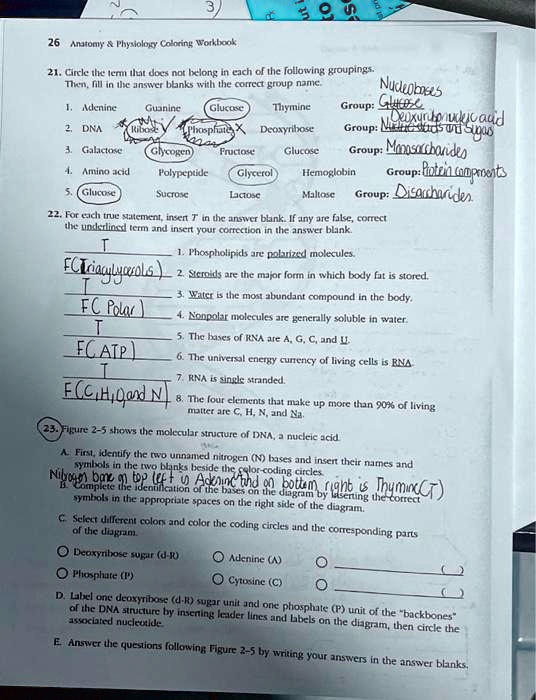 3)
26 Anatomy & Physiology Coloring Workbook
21. Circle the term that does not belong in each of the following groupings.
Then, fill in the answer blanks with the correct group name.
Nucleobases
1. Adenine Guanine Glucose Thymine Group: Glucose
Deoxyribonucleic acid
2. DNA Ribose Phosphate Deoxyribose Group:
3. Galactose Glycogen Fructose Glucose Group: Monosaccharides
4. Amino acid Polypeptide Glycerol Hemoglobin Group: Protein components
5. Glucose Sucrose Lactose Maltose Group: Disaccharides
22. For each true statement, insert T in the answer blank. If any are false, correct
the underlined term and insert your correction in the answer blank.
T 1. Phospholipids are polarized molecules.
F(Triacylycerols) 2. Steroids are the major form in which body fat is stored.
T 3. Water is the most abundant compound in the body.
F( Polar ) 4. Nonpolar molecules are generally soluble in water.
T 5. The bases of RNA are A, G, C, and U.
F( ATP ) 6. The universal energy currency of living cells is RNA.
T 7. RNA is single stranded.
F(C,H,O and N) 8. The four elements that make up more than 90% of living
matter are C, H, N, and Na.
23. Figure 2–5 shows the molecular structure of DNA, a nucleic acid.
A. First, identify the two unnamed nitrogen (N) bases and insert their names and
symbols in the two blanks beside the color-coding circles.
Nitrogen base on top left is Adenine and on bottom right is Thymine(T)
B. Complete the identification of the bases on the diagram by inserting the correct
symbols in the appropriate spaces on the right side of the diagram.
C. Select different colors and color the coding circles and the corresponding parts
of the diagram.
Deoxyribose sugar (d-R) Adenine (A) ( )
Phosphate (P) Cytosine (C) ( )
D. Label one deoxyribose (d-R) sugar unit and one phosphate (P) unit of the "backbones"
of the DNA structure by inserting leader lines and labels on the diagram, then circle the
associated nucleotide.
E. Answer the questions following Figure 2–5 by writing your answers in the answer blanks.